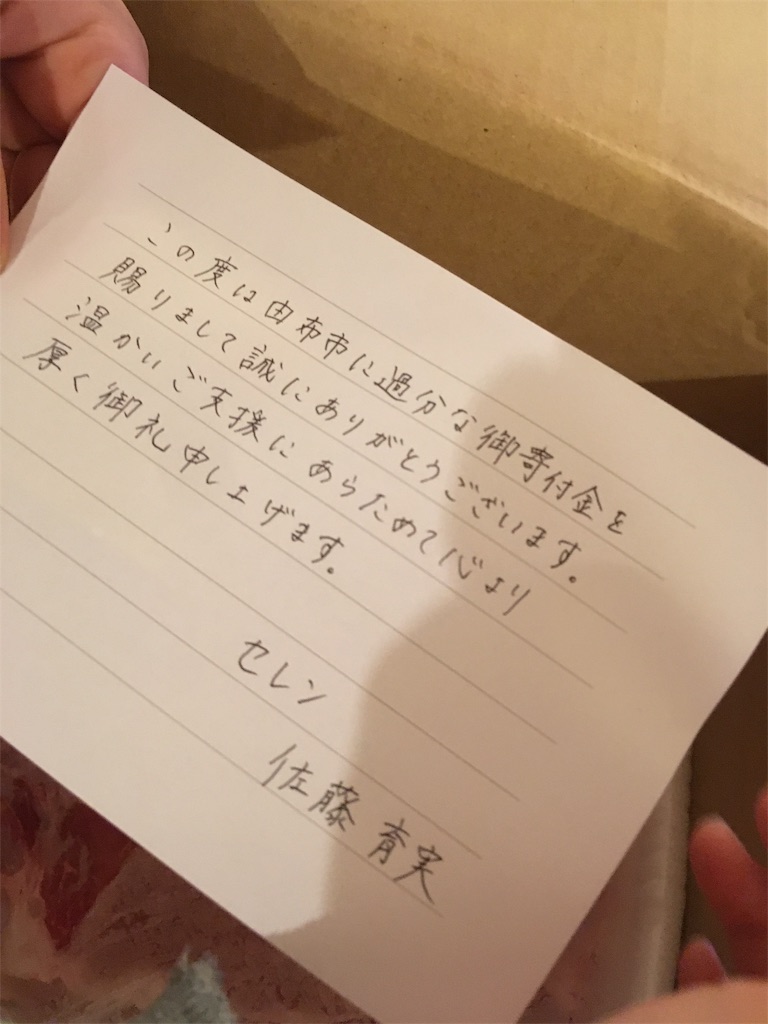 この度は由布市に過分な御寄付金を
賜りまして誠にありがとうございます。
温かいご支援にあらためて心より
厚く御礼申し上げます。
セレン
佐藤育実